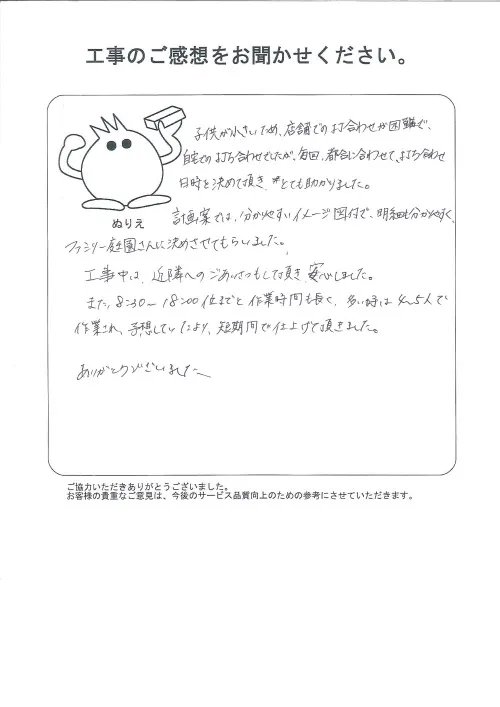 工事のご感想をお聞かせください。
子供が小さいため、店舗での打合わせが困難で、
自宅での打ち合わせでしたが、毎回、都合に合わせて、打ち合わせ
日時を決めて頂き、とても助かりました。
計画案では、分かりやすいイメージ図付で、明細も分かりやすく、
ぬりえ
ファミリー庭園さんに決めさせてもらいました。
工事中は、近隣へのごあいさつもして頂き、安心しました。
また、8:30〜18:00位までと作業時間も長く、多い時は4〜5人で
作業され、予想していたより、短期間で仕上げて頂きました。
ありがとうございました
ご協力いただきありがとうございました。
お客様の貴重なご意見は、今後のサービス品質向上のための参考にさせていただきます。